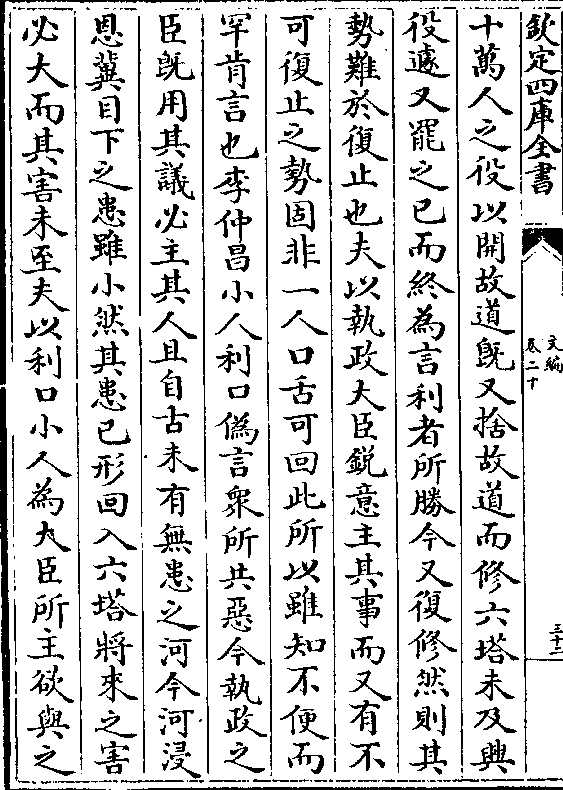 欽定四庫全書
文編
卷二十
三十二
十萬人之役以開故道既又捨故道而修六塔未及興
役遽又罷之已而終為言利者所勝今又復修然則其
勢難於復止也夫以執政大臣銳意主其事而又有不
可復止之勢固非一人口舌可回此所以雖知不便而
罕肯言也李仲昌小人利口偽言衆所共惡今執政之
臣既用其議必主其人且自古未有無患之河今河浸
恩冀目下之患雖小然其患已形回入六塔將來之害
必大而其害未至夫以利口小人為大臣所主欲與之